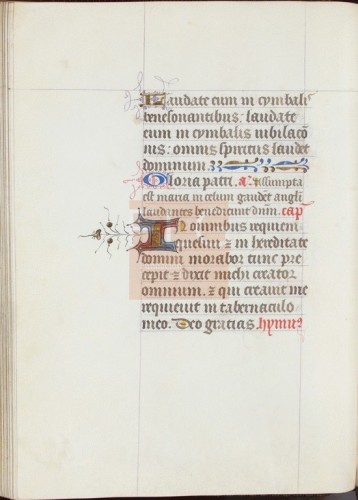 Laudate eum in cymbalis
benesonantibus: laudate
eum in cymbalis iubilacio
nis: omnis spiritus laudet
dominum.
Gloria patri. a. Assumpta
est maria in celum gaudet angli
laudantes benedicunt dnm. cap
In omnibus requiem
quesiui z in hereditate
domini morabor tunc pre
cepit z dixit michi creator
omnium. z qui creauit me
requieuit in tabernaculo
meo. Deo gracias. hymus